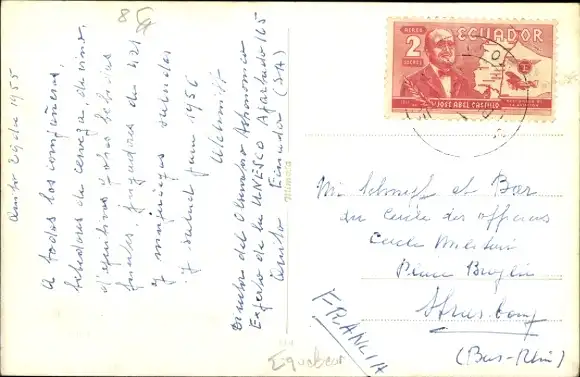 Quito 29 dic 1955
A todos los compañeros,
bebedores de cerveza, de vino,
d'aperitivos y otras bebidas
fuertes, jugadores de 421
y saludes
y salud para 1956
Schmitt
Director del Observatorio Astronomico
Experto de la UNESCO Apartado 165
Quito Ecuador (SA)
AEREO
ECUADOR
2
SUCRES
JOSE ABEL CASTILLO
Mimosa
Mr Schmitt et Bar
du Cercle des officiers
Cercle Militaire
Place Broglie
Strasbourg
(Bas-Rhin)
FRANCIA
Equateur